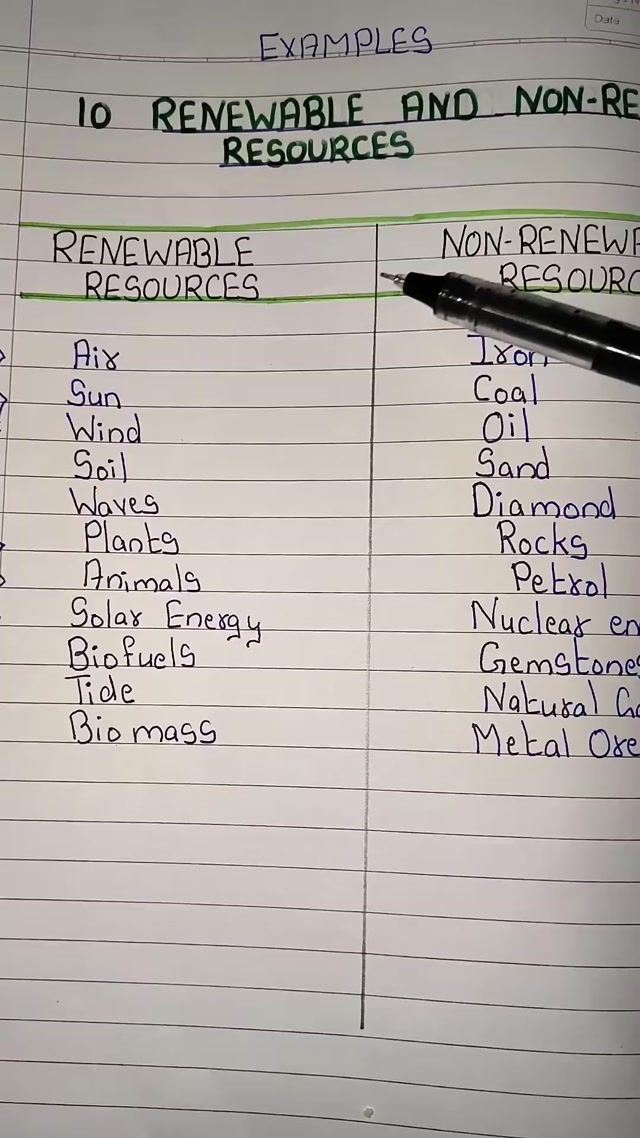 Data
EXAMPLES
10 RENEWABLE AND NON-RE
RESOURCES
RENEWABLE
RESOURCES
NON-RENEWA
RESOURC
Air
Iron
Sun
Coal
Wind
Oil
Soil
Sand
Waves
Diamond
Plants
Rocks
Animals
Petrol
Solar Energy
Nuclear en
Biofuels
Gemstones
Tide
Natural Ga
Bio mass
Metal Ore